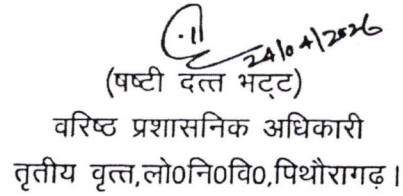 24/04/2026
(षष्टी दत्त भट्ट)
वरिष्ठ प्रशासनिक अधिकारी
तृतीय वृत्त,लो0नि0वि0,पिथौरागढ़।